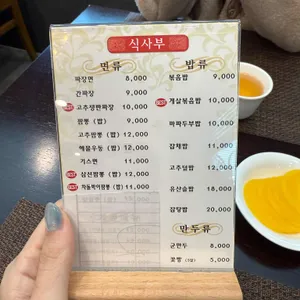 식사부
면류
짜장면 8,000
간짜장 9,000
BEST 고추쟁반짜장 10,000
짬뽕 (밥) 9,000
고추짬뽕 (밥) 12,000
해물우동 (밥) 12,000
기스면 11,000
BEST 삼선짬뽕 (밥) 12,000
BEST 차돌박이짬뽕 (밥) 11,000
밥류
볶음밥 9,000
BEST 게살볶음밥 10,000
마파두부밥 10,000
잡채밥 11,000
고추덮밥 12,000
유산슬밥 18,000
잡탕밥 20,000
만두류
군만두 8,000
꽃빵 5,000